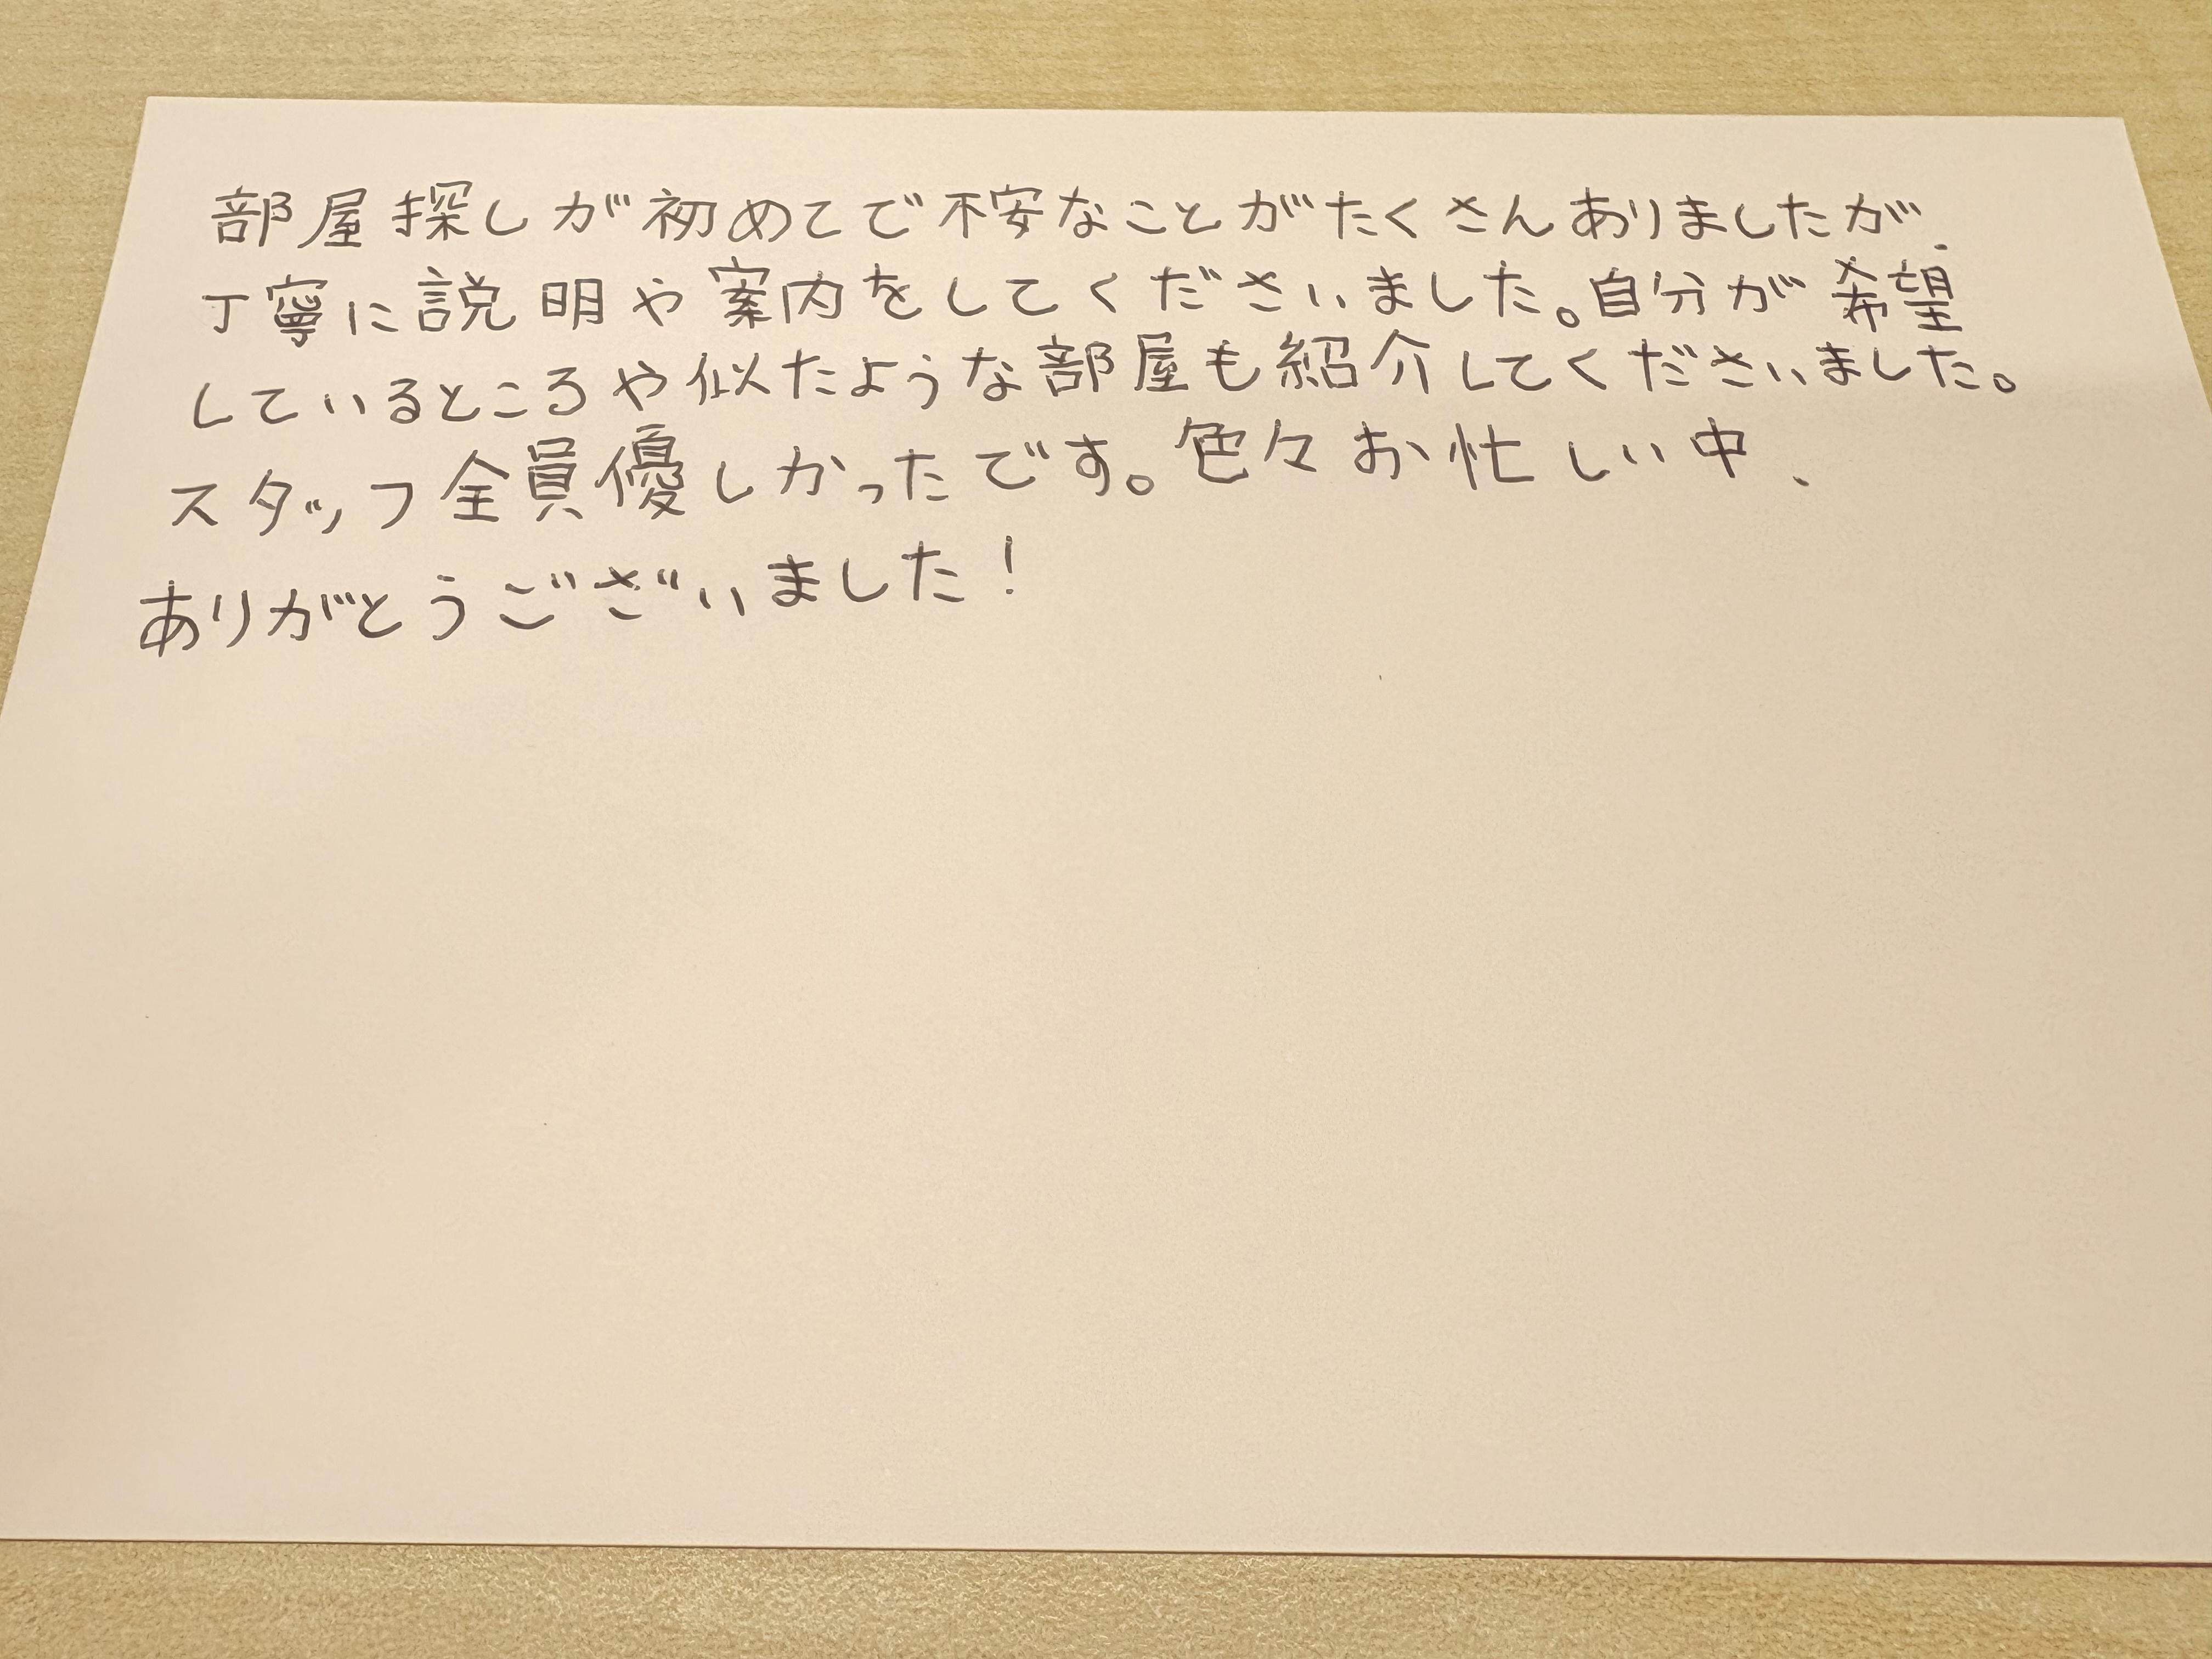 部屋探しが初めてで不安なことがたくさんありましたが、
丁寧に説明や案内をしてくださいました。自分が希望
しているところや似たような部屋も紹介してくださいました。
スタッフ全員優しかったです。色々お忙しい中、
ありがとうございました！